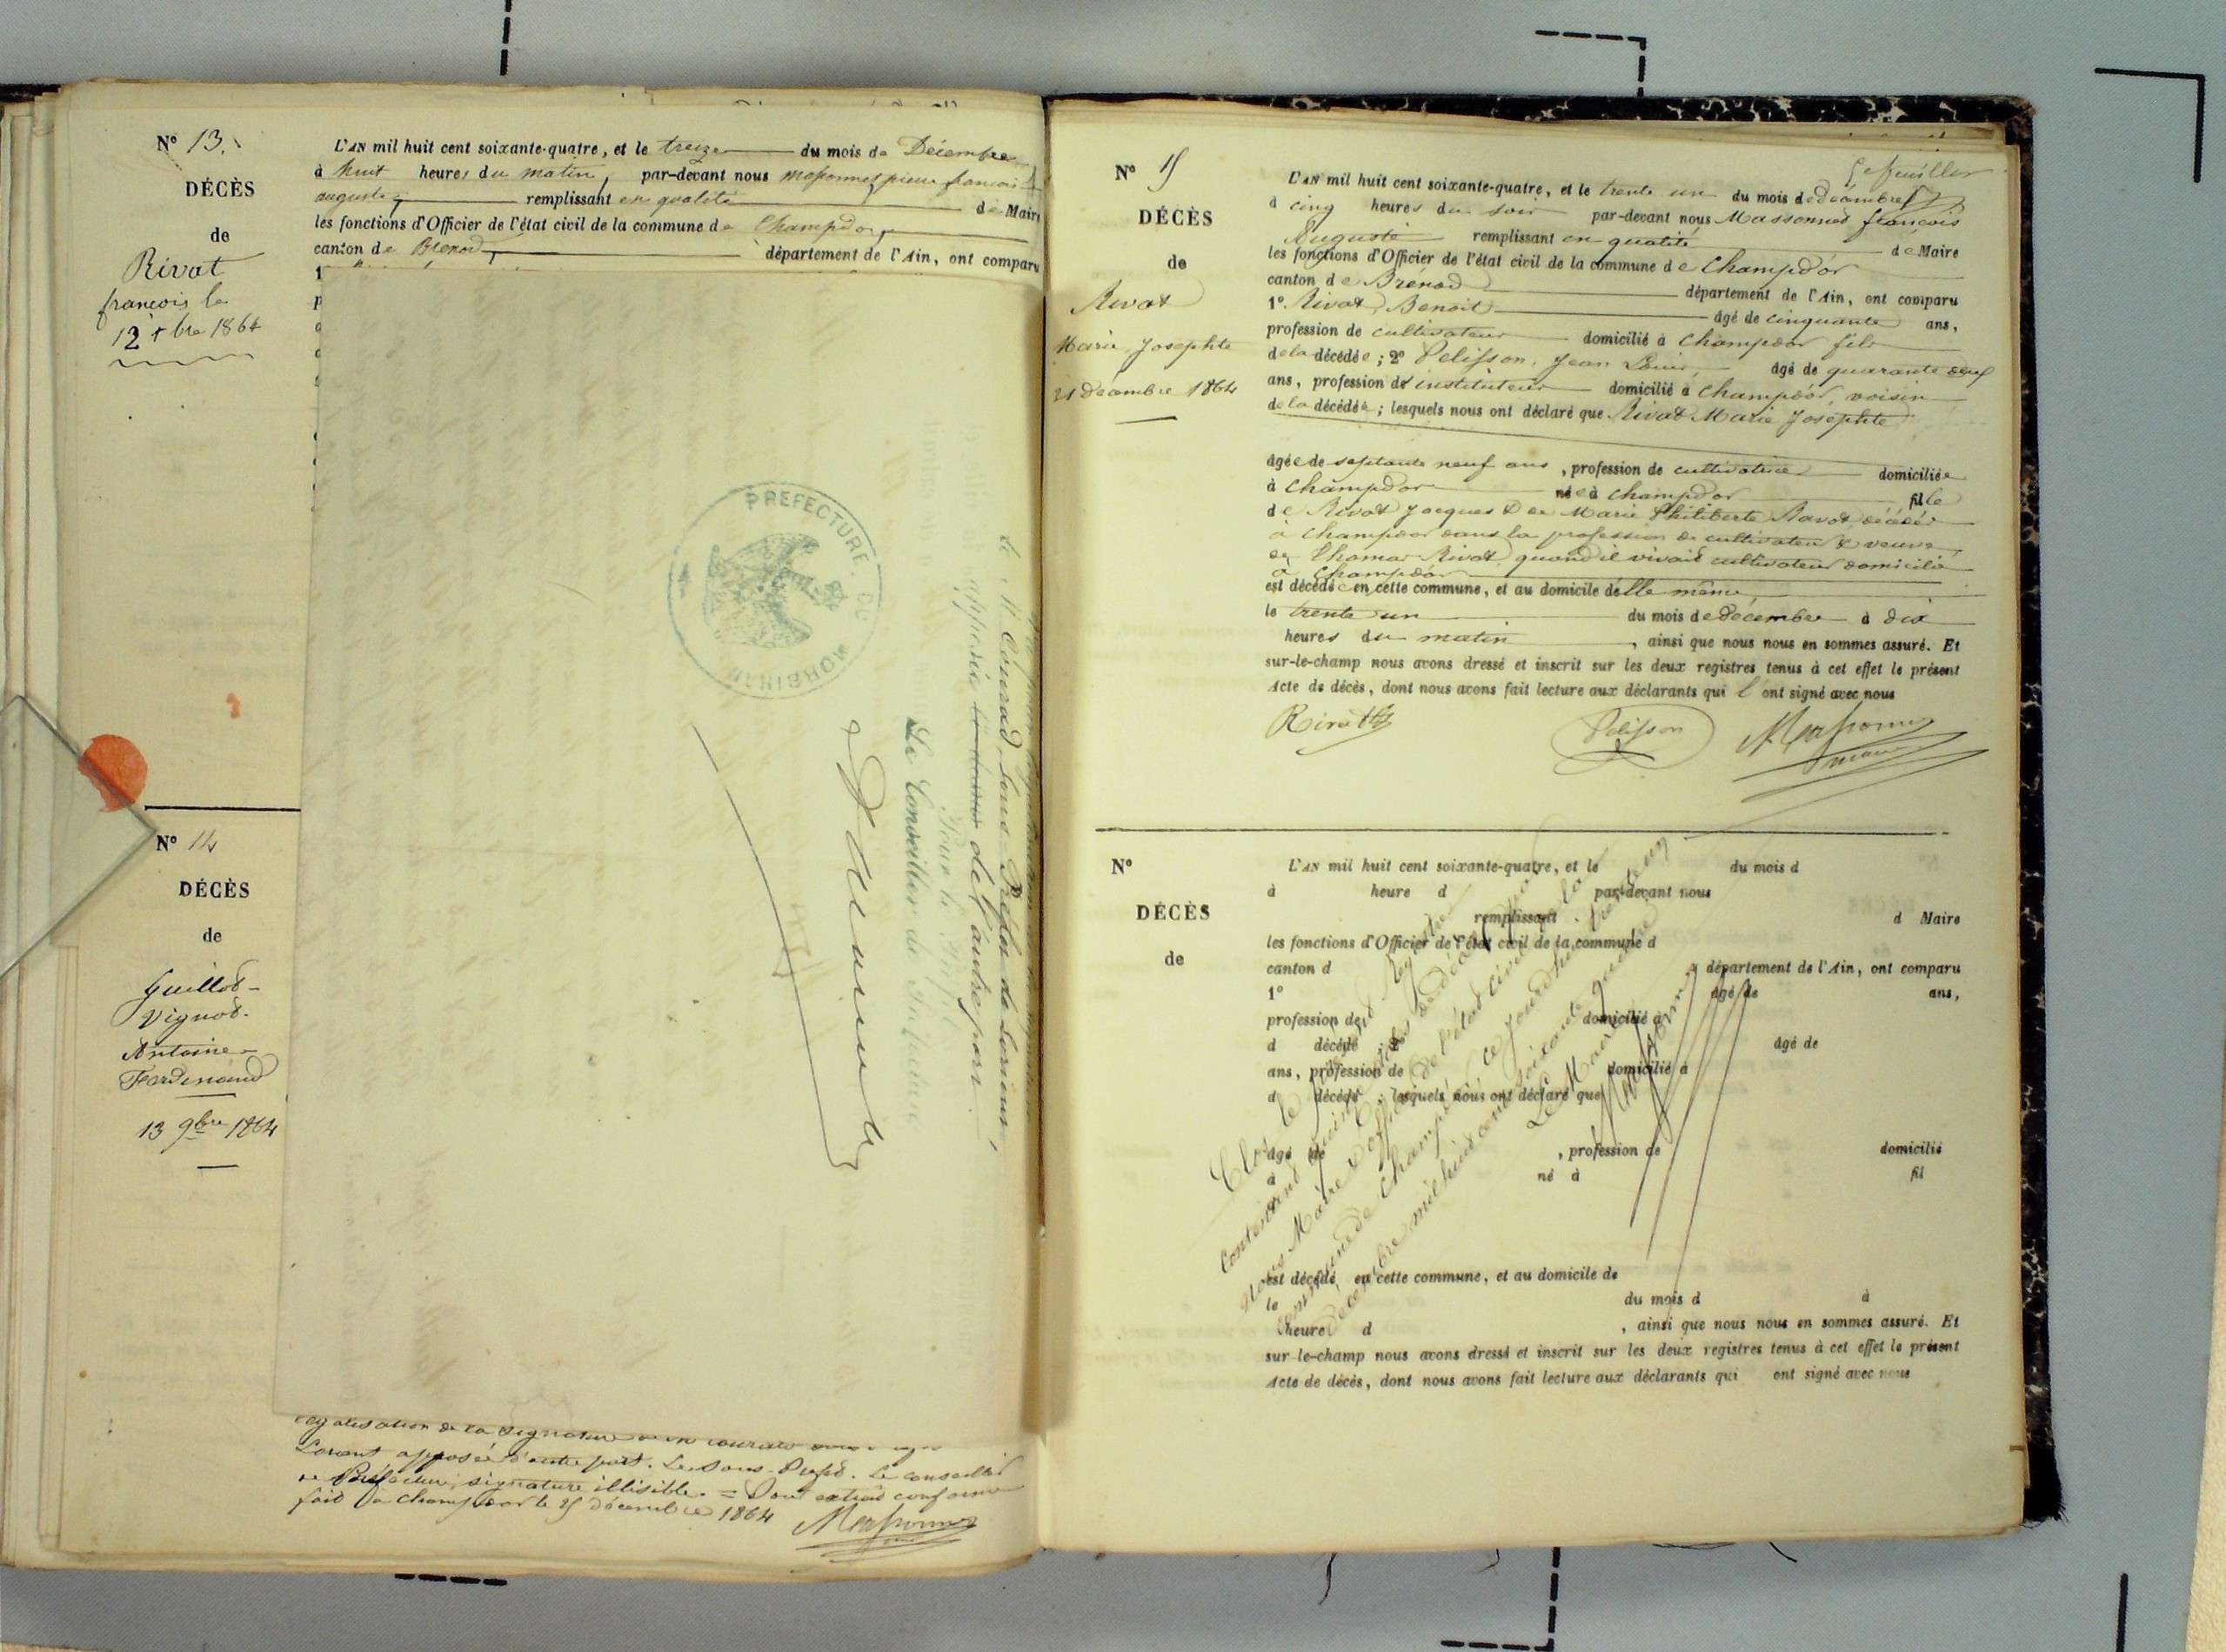 Nº 13.
DÉCÈS
de
Rivat
françois le
12 xbre 1864
L'AN mil huit cent soixante-quatre, et le treize du mois de Décembre
à huit heures du matin, par-devant nous massonnet pierre françois
auguste, remplissant en qualité de Maire
les fonctions d'Officier de l'état civil de la commune de Champdor,
canton de Brenod, département de l'Ain, ont comparu
Nº 14
DÉCÈS
de
Guillod-
Vignod.
Antoine-
Ferdinand
13 9bre 1864
PREFECTURE DU MORBIHAN
de Mr Courad, sous-Préfet de Lorient,
apposée de l'autre part.
Le Conseiller de Préfecture
légalisation de la signature
Lorient apposée d'autre part. Le Sous-Préfet. Le conseiller
de Préfecture, signature illisible. = Pour extrait conforme
fait à Champdor le 25 décembre 1864 Massonnet
5e feuillet
Nº 15
DÉCÈS
de
Rivat
Marie Josephte
31 décembre 1864
L'AN mil huit cent soixante-quatre, et le trente un du mois de décembre
à cinq heures du soir par-devant nous Massonnet françois
Auguste remplissant en qualité de Maire
les fonctions d'Officier de l'état civil de la commune de Champdor
canton de Brénod département de l'Ain, ont comparu
1º. Rivat, Benoit âgé de cinquante ans,
profession de cultivateur domicilié à Champdor fils
de la décédée ; 2º Pelisson, Jean Louis, âgé de quarante neuf
ans, profession d'instituteur domicilié à Champdor, voisin
de la décédée ; lesquels nous ont déclaré que Rivat Marie Josephte
âgée de septante neuf ans, profession de cultivatrice domiciliée
à Champdor née à Champdor fille
de Rivat Jacques & de Marie Philiberte Ravot décédés
à Champdor dans la profession de cultivateur & veuve
de Thomas Rivat, quand il vivait cultivateur domicilié
à Champdor
est décédée en cette commune, et au domicile d'elle même,
le trente un du mois de décembre à dix
heures du matin, ainsi que nous nous en sommes assuré. Et
sur-le-champ nous avons dressé et inscrit sur les deux registres tenus à cet effet le présent
Acte de décès, dont nous avons fait lecture aux déclarants qui l'ont signé avec nous
Rivat Pelisson Massonnet
maire
Nº
DÉCÈS
de
L'AN mil huit cent soixante-quatre, et le du mois d
à heure d par-devant nous
remplissant d Maire
les fonctions d'Officier de l'état civil de la commune d
canton d département de l'Ain, ont comparu
1º âgé de ans,
profession de domicilié à
d décédé ; 2º âgé de
ans, profession de domicilié à
d décédé ; lesquels nous ont déclaré que
âgé de , profession de domicilié
à né à fil
est décédé en cette commune, et au domicile de
le du mois d à
heure d , ainsi que nous nous en sommes assuré. Et
sur-le-champ nous avons dressé et inscrit sur les deux registres tenus à cet effet le présent
Acte de décès, dont nous avons fait lecture aux déclarants qui ont signé avec nous
Clos le présent Registre
contenant quinze actes de décès par
nous Maire & officier de l'état civil de la
commune de Champdor ce jourd'hui trente un
décembre mil huit cent soixante quatre
Le Maire
Massonnet